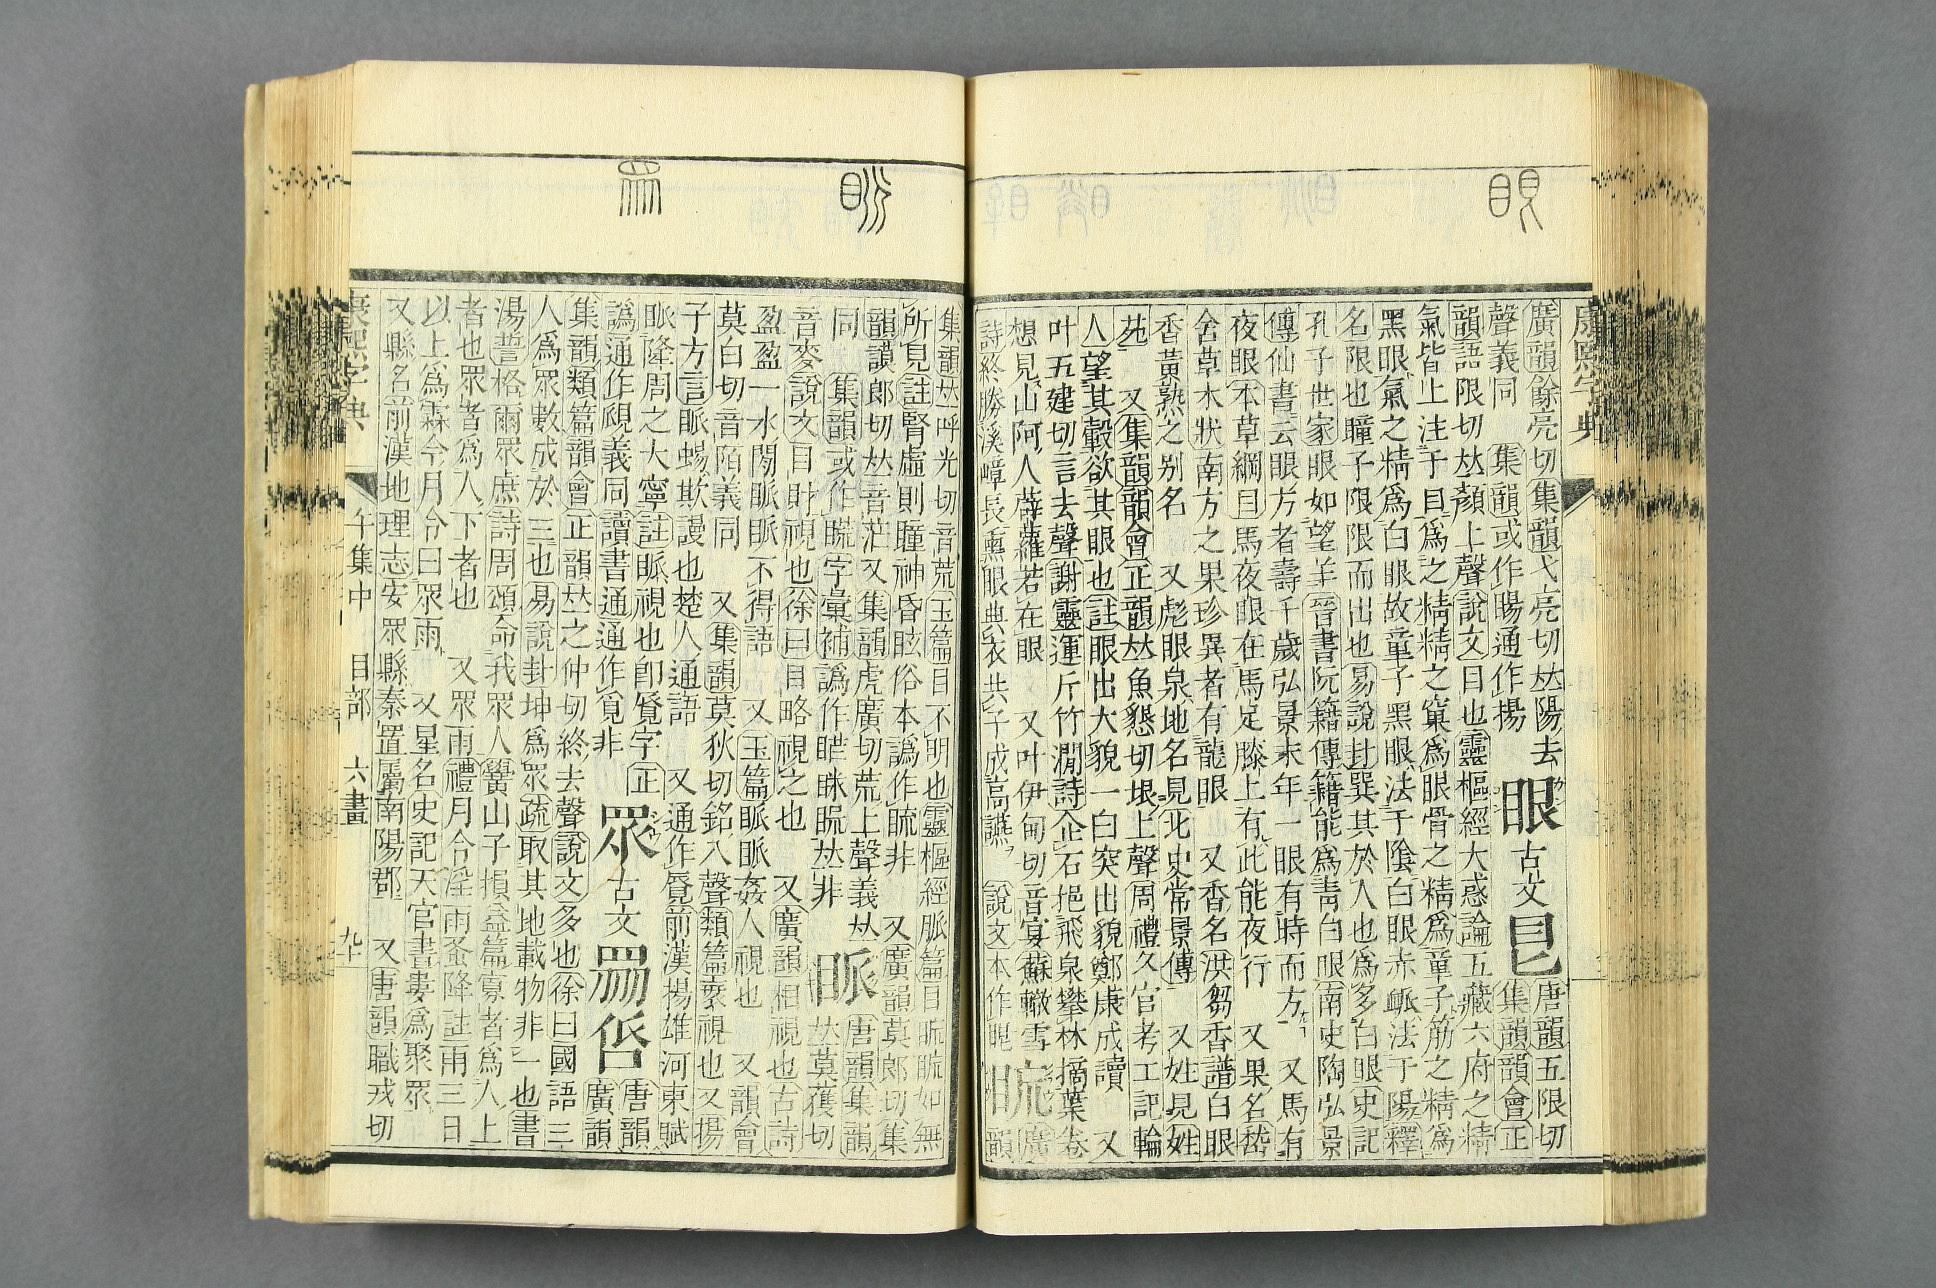 康熙字典
廣韻餘亮切集韻弋亮切𠀤陽去
聲義同 集韻或作暘通作揚
眼 古文
唐韻五限切
集韻韻會正
韻語限切𠀤顏上聲說文目也靈樞經大惑論五藏六府之精
氣皆上注于目爲之精精之窠爲眼骨之精爲童子筋之精爲
黑眼氣之精爲白眼故童子黑眼法于隂白眼赤脈法于陽釋
名限也瞳子限限而出也易說卦巽其於人也爲多白眼史記
孔子世家眼如望羊晉書阮籍傳籍能爲靑白眼南史陶弘景
傳仙書云眼方者壽千歲弘景末年一眼有時而方 又馬有
夜眼本草綱目馬夜眼在馬足膝上有此能夜行 又果名嵆
含草木狀南方之果珍異者有龍眼 又香名洪芻香譜白眼
香黃熟之別名 又彪眼泉地名見北史常景傳 又姓見姓
苑 又集韻韻會正韻𠀤魚懇切垠上聲周禮冬官考工記輪
人望其轂欲其眼也註眼出大貌一曰突出貌鄭康成讀 又
叶五建切言去聲謝靈運斤竹澗詩企石挹飛泉攀林摘葉卷
想見山阿人薜蘿若在眼 又叶伊甸切音宴蘇轍雪
詩終勝溪嶂長熏眼典衣共子成高讌 說文本作
廣
韻
集韻𠀤呼光切音荒玉篇目不明也靈樞經脈篇目䀮䀮如無
所見註腎虛則瞳神昏眩俗本譌作非 又廣韻莫郎切集
韻謨郎切𠀤音茫又集韻虎廣切荒上聲義𠀤
同 集韻或作字彙補譌作𠀤非
眽
唐韻集韻
𠀤莫獲切
音麥說文目財視也徐曰目略視之也 又廣韻相視也古詩
盈盈一水閒眽眽不得語 又玉篇眽眽姦人視也 又韻會
莫白切音陌義同 又集韻莫狄切銘入聲類篇衺視也又揚
子方言眽蜴欺謾也楚人通語 又通作覛前漢揚雄河東賦
眽隆周之大寧註眽視也卽覛字 正
譌通作覛義同讀書通通作覓非
眾 古文
唐韻
廣韻
集韻類篇韻會正韻𠀤之仲切終去聲說文多也徐曰國語三
人爲眾數成於三也易說卦坤爲眾疏取其地載物非一也書
湯誓格爾眾庶詩周頌命我眾人黌山子損益篇寡者爲人上
者也眾者爲人下者也 又眾雨禮月令淫雨蚤降註雨三日
以上爲霖今月令曰眾雨 又星名史記天官書婁爲聚眾
又縣名前漢地理志安眾縣秦置屬南陽郡 又唐韻職戎切
康熙字典 午集中 目部 六畫